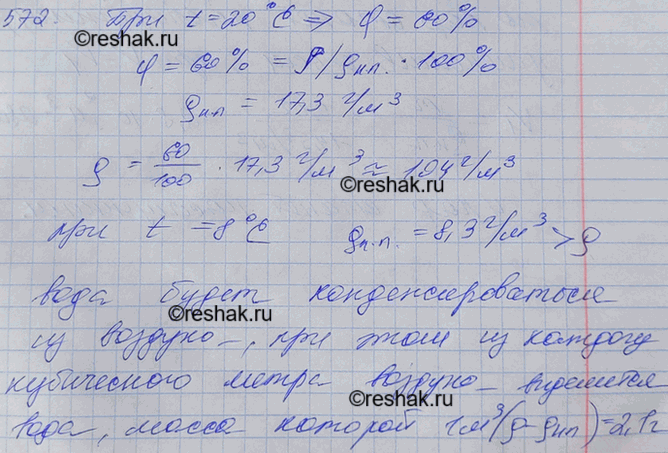 572 При t = 20°C ⇒ φ = 60%
©reshak.ru
φ = 60% = ρ/ρн.п. · 100%
ρн.п. = 17,3 г/м³
ρ = 60/100 · 17,3 г/м³ ≈ 104 г/м³
©reshak.ru ©reshak.ru
при t = 8°C ρн.п. = 8,3 г/м³ > ρ
©reshak.ru
вода будет конденсироваться
из воздуха, при этом из каждого
кубического метра воздуха выделится
©reshak.ru
вода, масса которой 1м³(ρ-ρнп)=2,1г